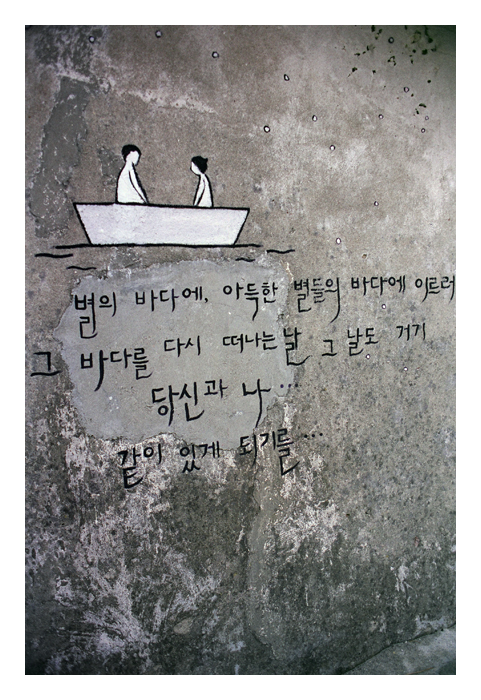 별의 바다에, 아득한 별들의 바다에 이르러
그 바다를 다시 떠나는 날 그 날도 거기
당신과 나...
같이 있게 되기를...